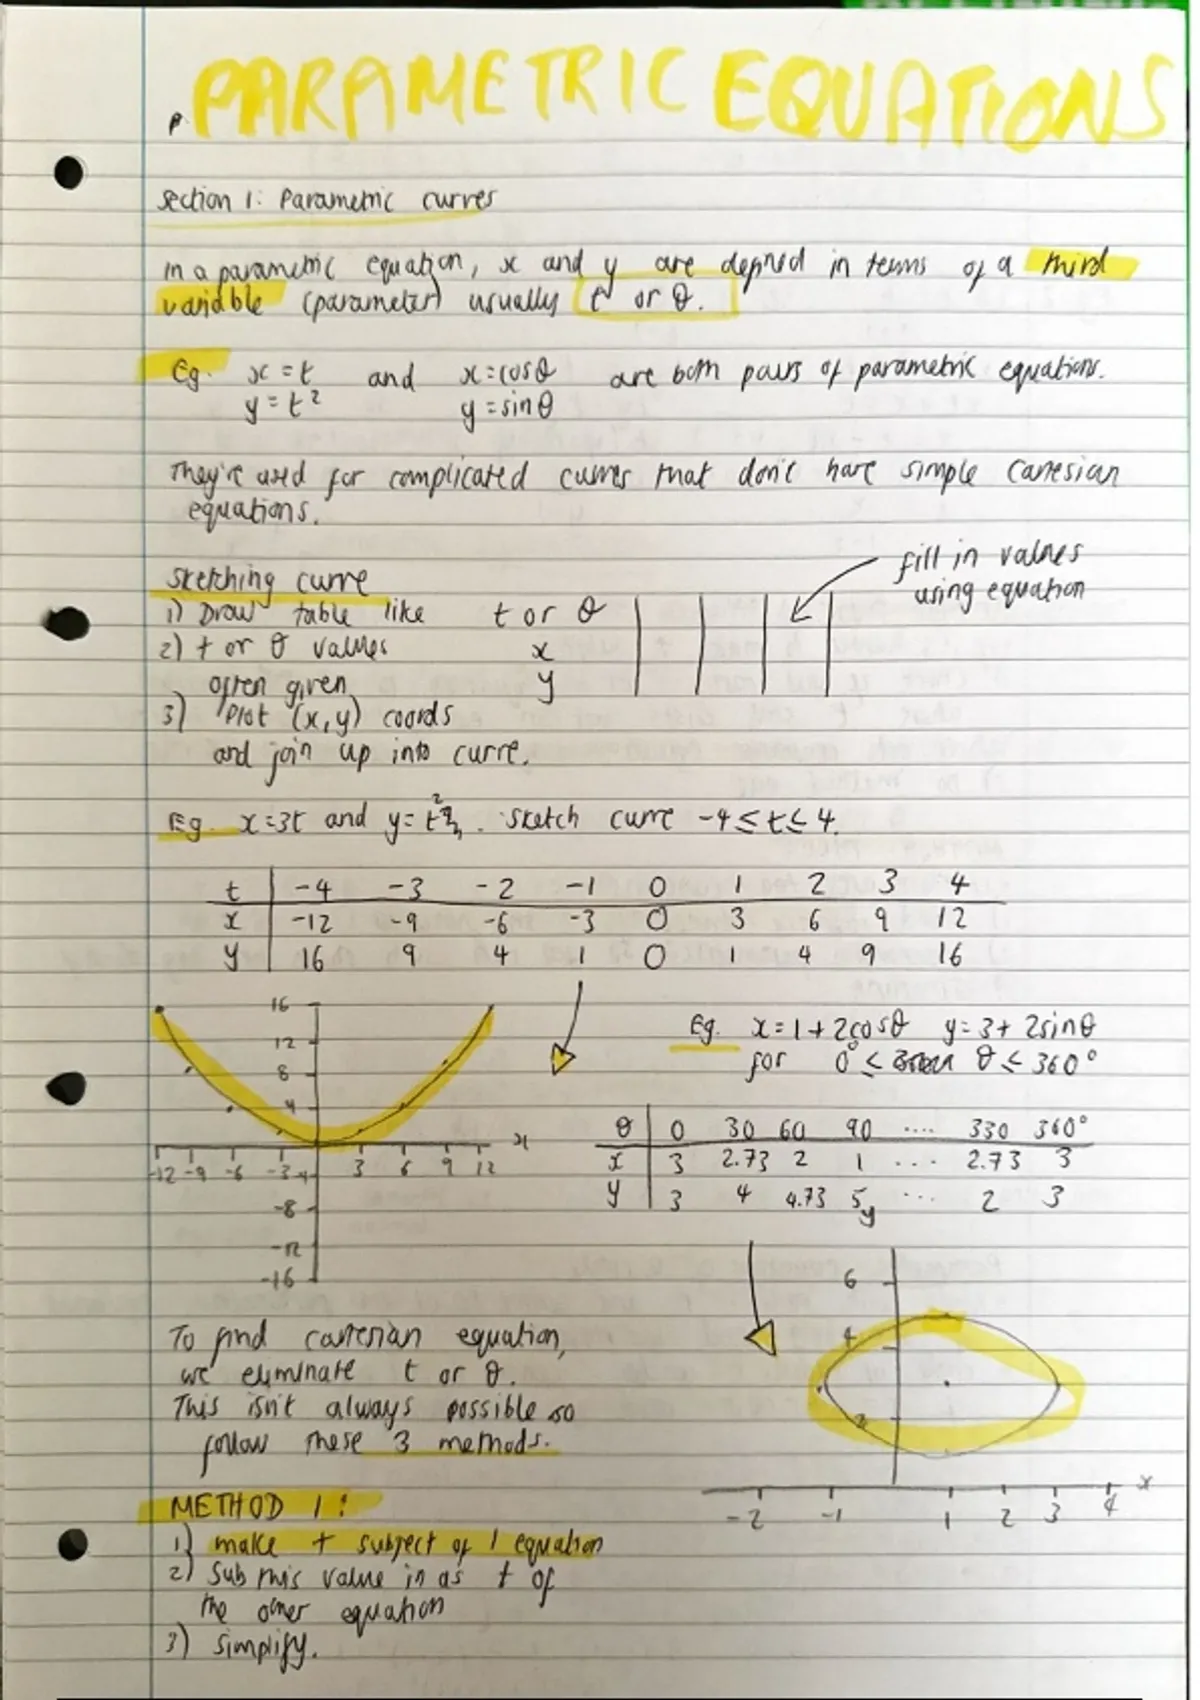 PARAMETRIC EQUATIONS
Section 1: Parametric curves
In a parametric equation, x and y are defined in terms of a third
variable (parameter) usually t or θ.
Eg. x = t and x = cosθ are both pairs of parametric equations.
y = t² y = sinθ
They're used for complicated curves that don't have simple cartesian
equations.
fill in values
using equation
Sketching curve
1) Draw table like t or θ
2) t or θ values x
often given y
3) Plot (x,y) coords
and join up into curve.
Eg. x=3t and y= t². Sketch curve -4≤t≤4.
t -4 -3 -2 -1 0 1 2 3 4
x -12 -9 -6 -3 0 3 6 9 12
y 16 9 4 1 0 1 4 9 16
16
12
8
4
x
-12 -9 -6 -3 3 6 9 12
-4
-8
-12
-16
Eg. x=1+2cosθ y=3+2sinθ
for 0° ≤ θ ≤ 360°
θ 0 30 60 90 .... 330 360°
x 3 2.73 2 1 ... 2.73 3
y 3 4 4.73 5 ... 2 3
y
6
4
2
x
-2 -1 1 2 3 4
To find cartesian equation,
we eliminate t or θ.
This isn't always possible so
follow these 3 methods.
METHOD 1:
1) make t subject of 1 equation
2) Sub this value in as t of
the other equation
3) simplify.